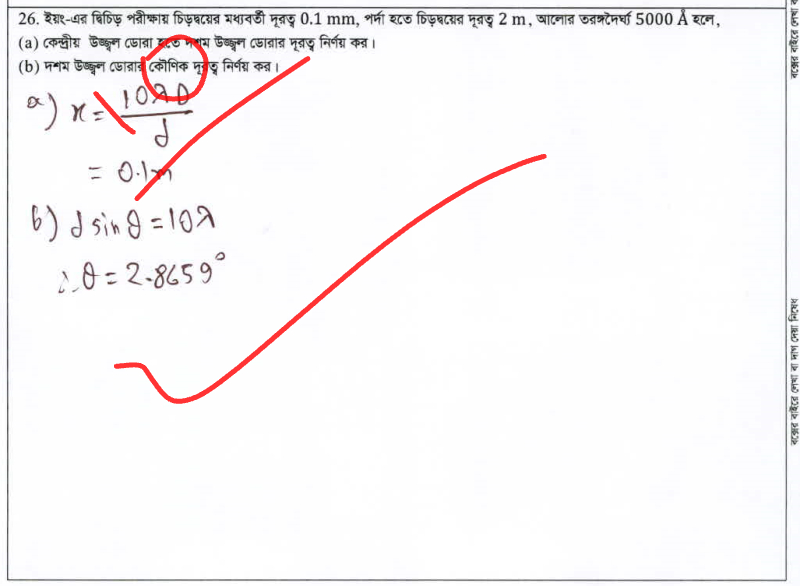 26. ইয়ং-এর দ্বিচিড় পরীক্ষায় চিড়দ্বয়ের মধ্যবর্তী দূরত্ব 0.1 mm, পর্দা হতে চিড়দ্বয়ের দূরত্ব 2 m, আলোর তরঙ্গদৈর্ঘ্য 5000 Å হলে,
(a) কেন্দ্রীয় উজ্জ্বল ডোরা হতে দশম উজ্জ্বল ডোরার দূরত্ব নির্ণয় কর।
(b) দশম উজ্জ্বল ডোরার কৌণিক দূরত্ব নির্ণয় কর।
a) x = 10λD / d
= 0.1m
b) d sin θ = 10λ
∴ θ = 2.8659°
বক্সের বাইরে লেখা বা দাগ দেয়া নিষেধ
বক্সের বাইরে লেখা ব